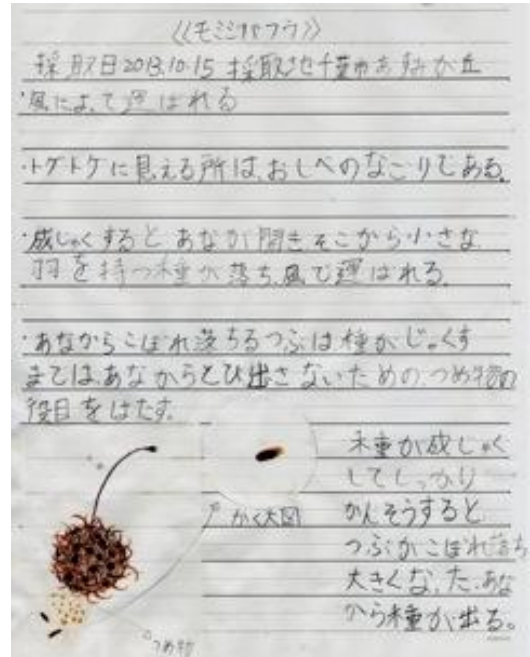 《モミジバフウ》
採取日2013.10.15 採取地千葉市あすみが丘
・風によって運ばれる
・トゲトゲに見える所は、おしべのなごりである。
・成じゅくするとあなが開きそこから小さな
羽を持つ種が落ち、風で運ばれる。
・あなからこぼれ落ちるつぶは種がじゅくす
まではあなからとび出さないためのつめ物の
役目をはたす。
種が成じゅく
してしっかり
かんそうすると
つぶがこぼれ落ち
大きくなったあな
から種が出る。
かく大図
つめ物